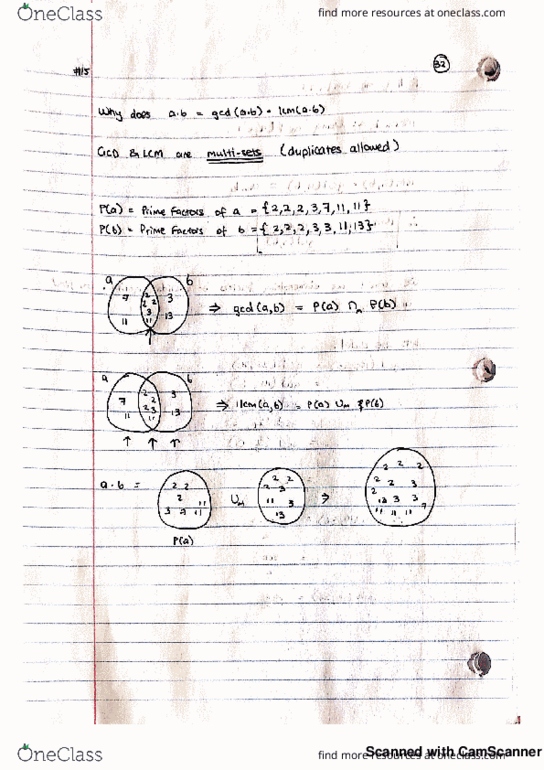 OneClass
find more resources at oneclass.com
32
#15
Why does a·b = gcd(a·b) · lcm(a·b)
GCD & LCM are multi-sets (duplicates allowed)
P(a) = Prime Factors of a = {2,2,2,3,7,11,11}
P(b) = Prime Factors of b = {2,2,2,3,3,11,13}
a b
7 2 2 2 3 11 3
11 13
⇒ gcd(a,b) = P(a) ∩m P(b)
a b
7 2 2 2 3 11 3
11 13
⇒ lcm(a,b) = P(a) Um P(b)
a·b =
2 2 2 11 3 7 11
Um
2 2 2 3 11 3 13
⇒
2 2 2 2 2 3 2 13 3 3 7 11 11 11
P(a)
OneClass
find more resources at oneclass.com
Scanned with CamScanner